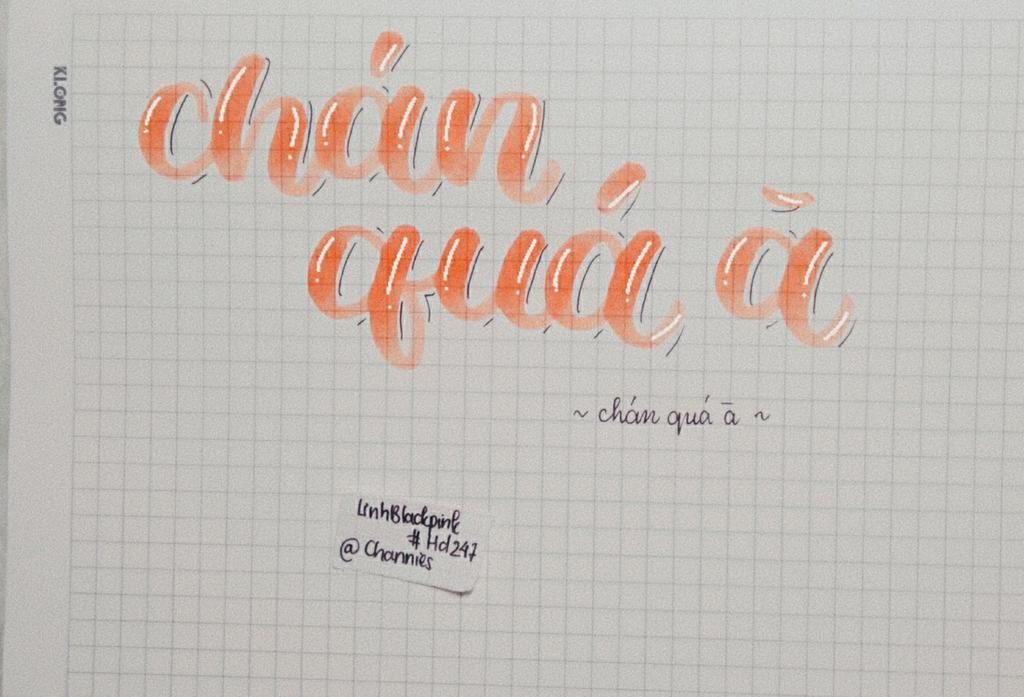 KLONG
chán
quá ā
~ chán quá ā ~
LinhBlackpink
#Hd247
@Channies